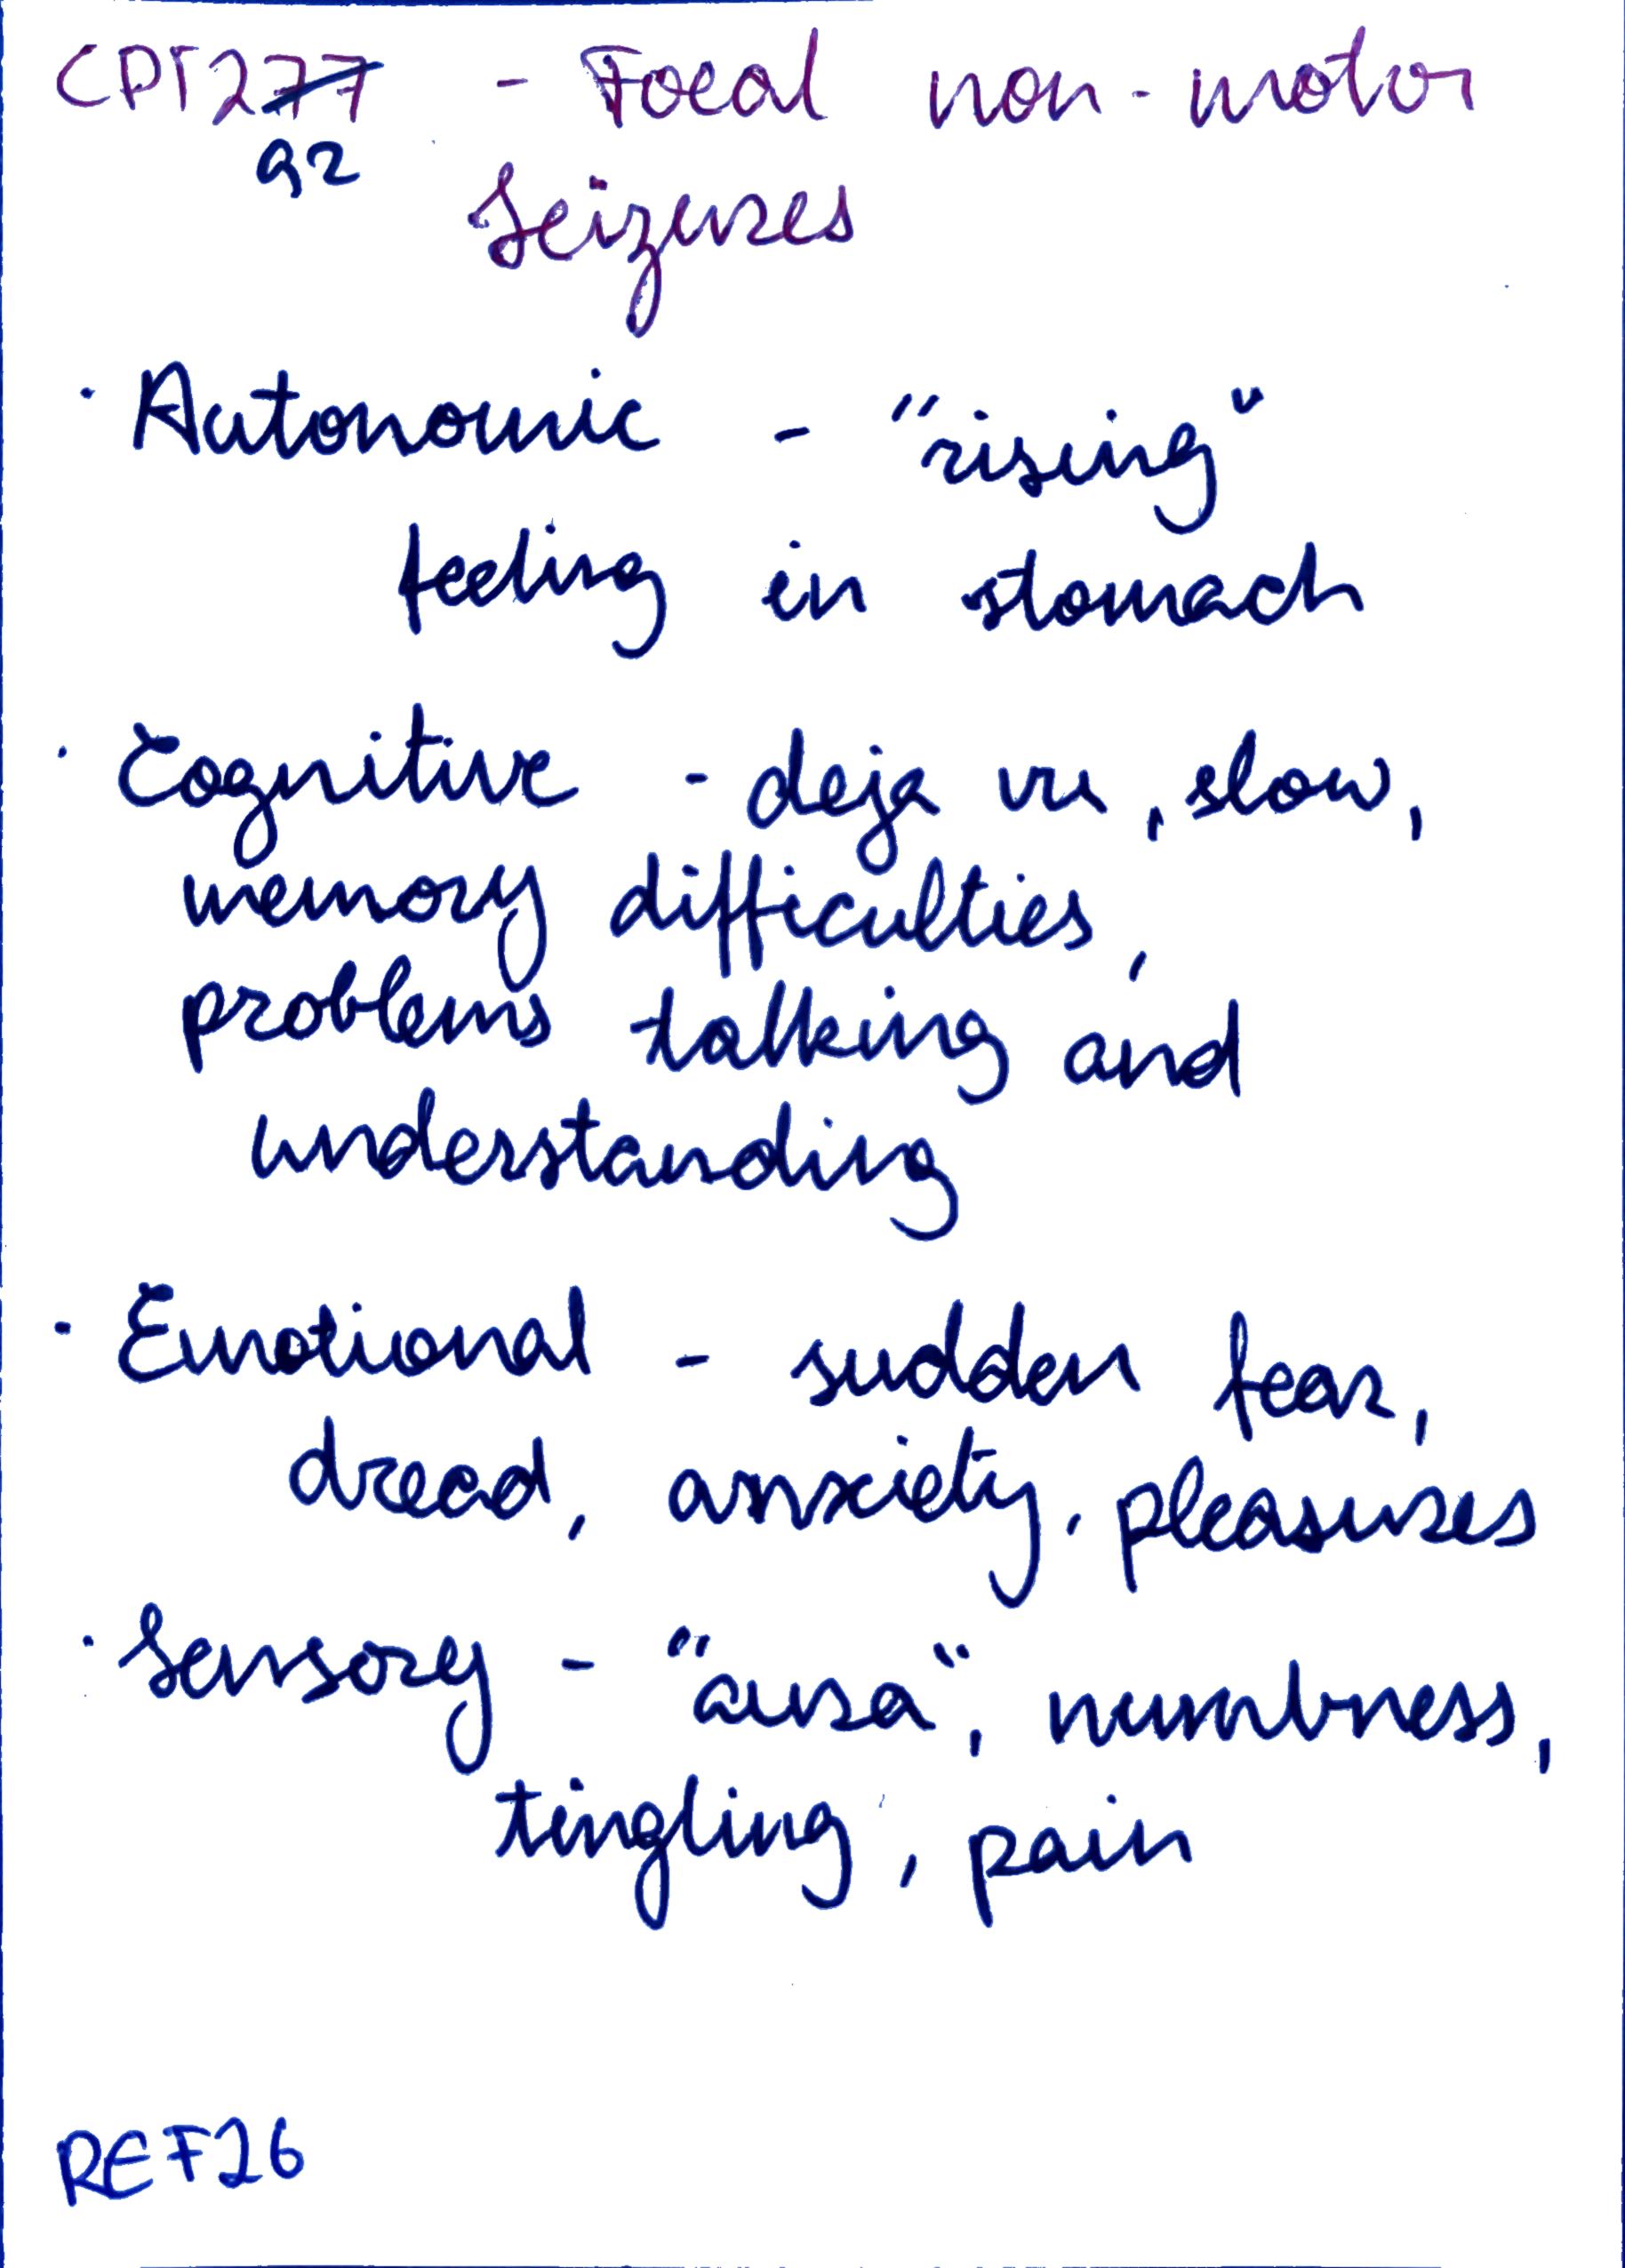 CPT277 - Focal non-motor
92
Seizures
· Autonomic - "rising"
feeling in stomach
· Cognitive - deja vu, slow,
memory difficulties,
problems talking and
understanding
- Emotional - sudden fear,
dread, anxiety, pleasures
· Sensory - "aura", numbness,
tingling, pain
REF26